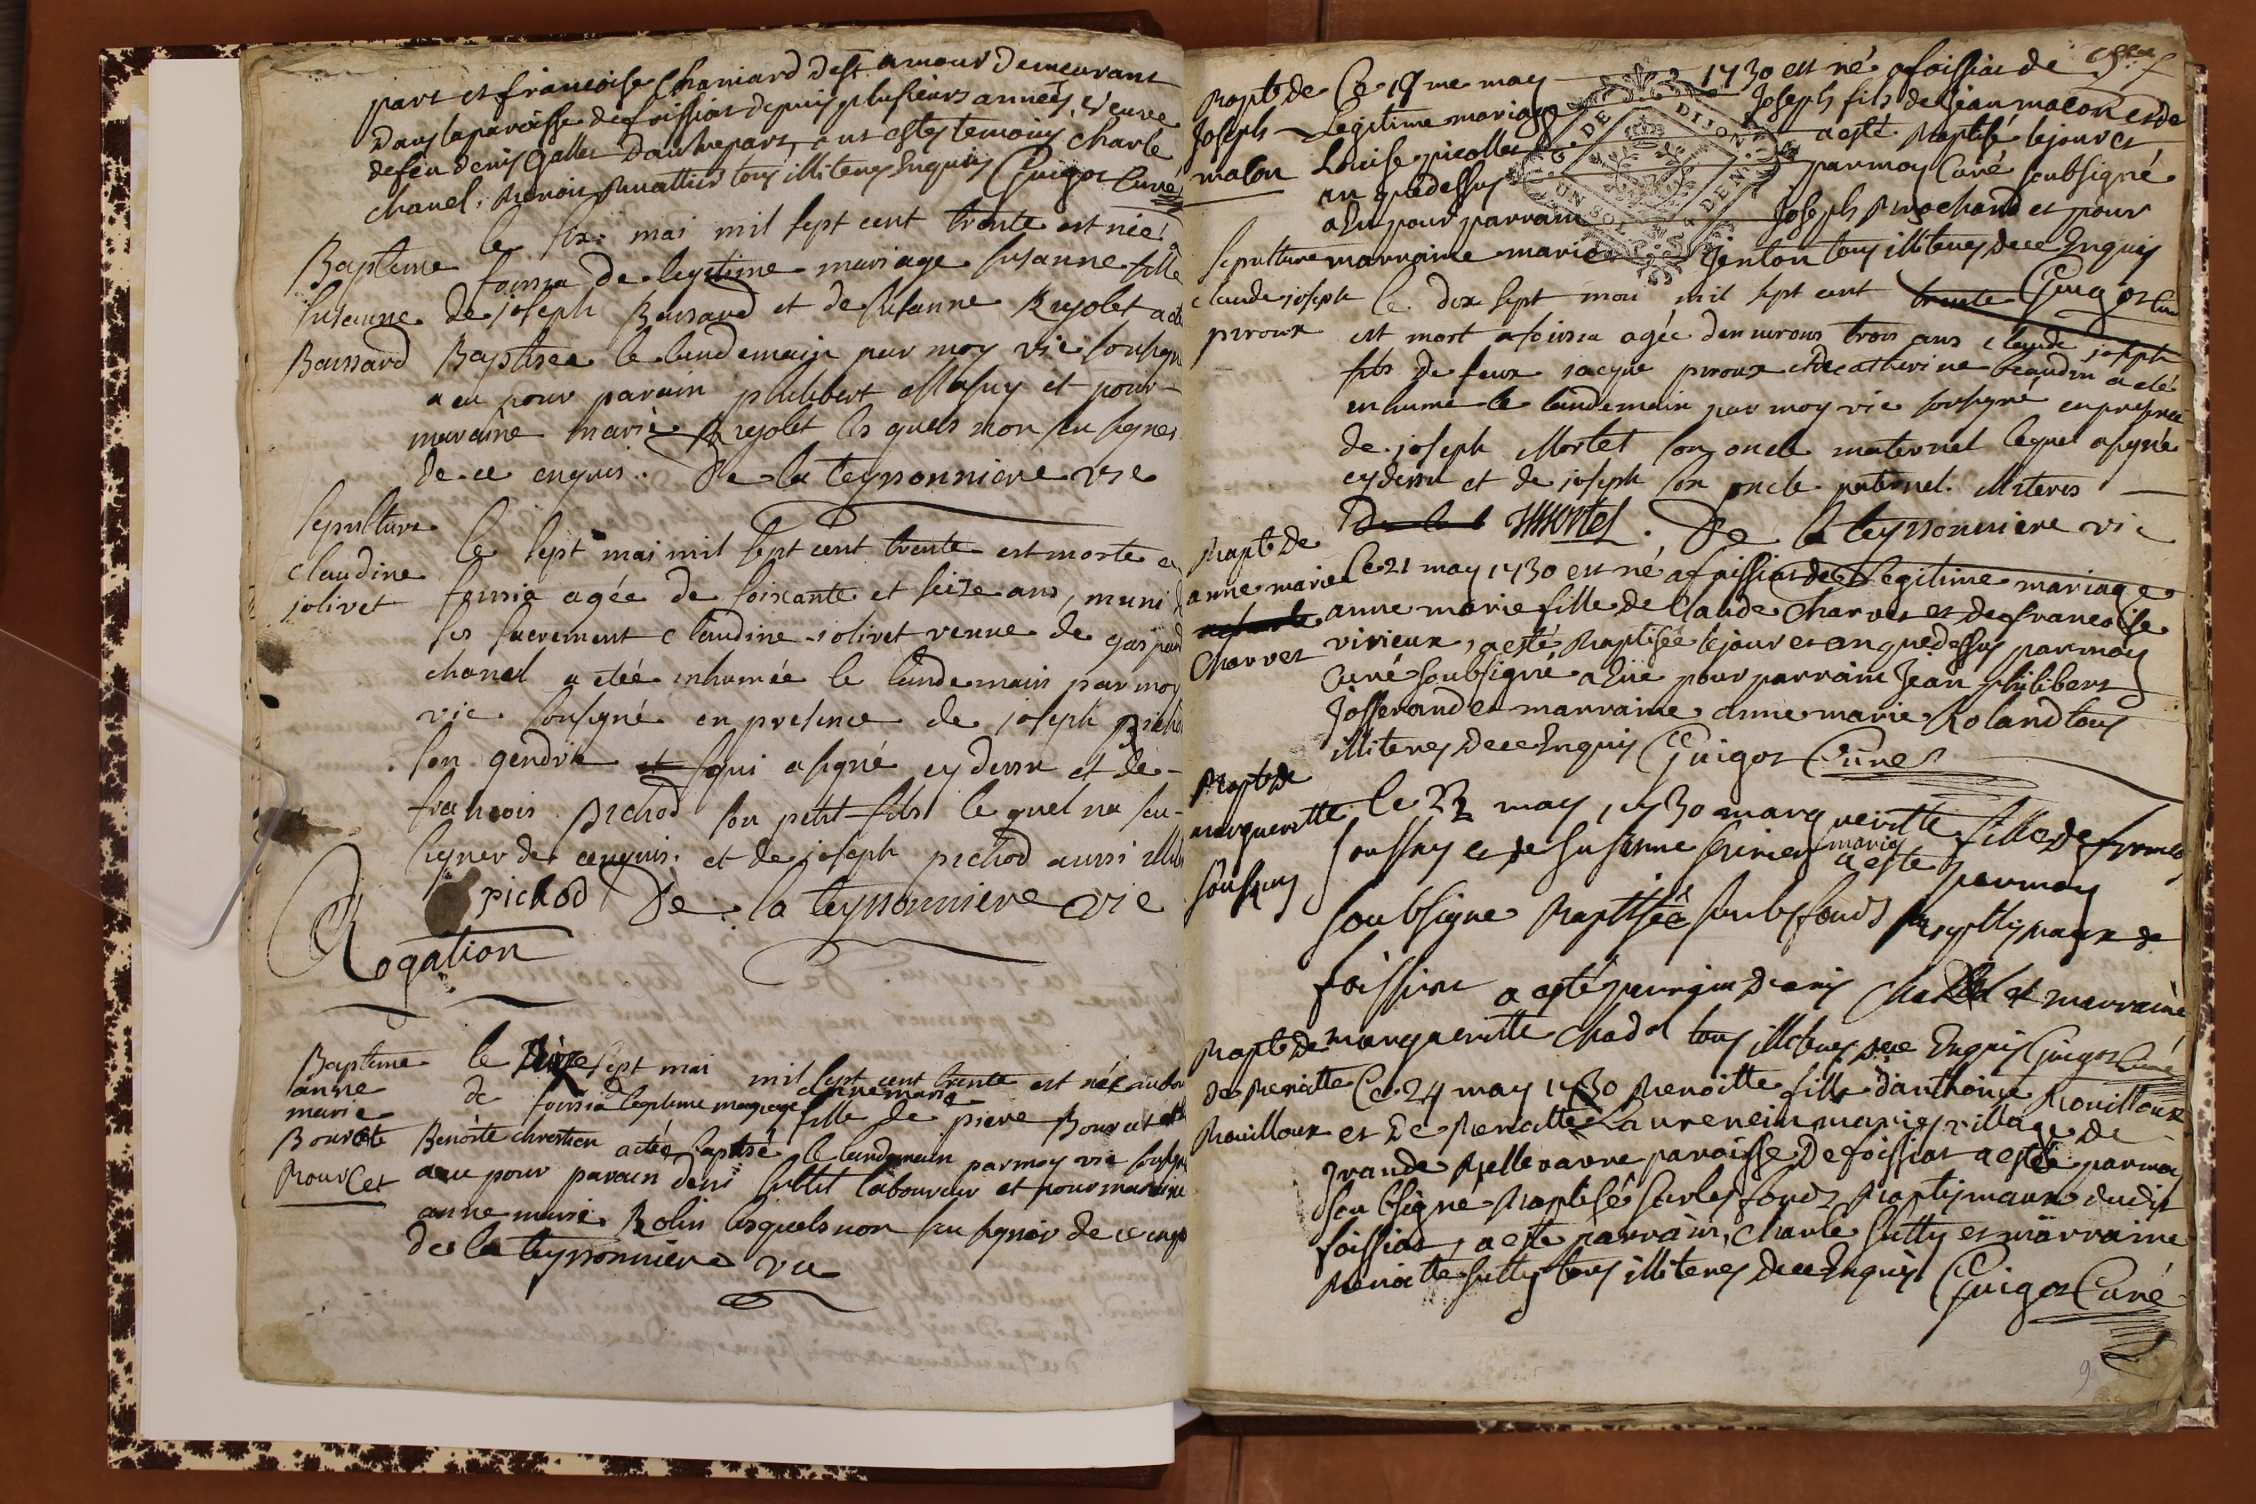 part et francoise Chaniard de st amour demeurant
dans la paroisse de foissiat depuis plusieurs années, veuve
de feu denis Gallet d'autre part, ont estes temoins charle
chanel, Benoit tous illiteres Enquis Guigot Curé
Bapteme
susanne
Baissard
le six mai mil sept cent trente est née a
foissia de legitime mariage susanne fille
de joseph Baissard et de susanne Rujolet a eté
Baptisée le lundemain par moy vic sousigné
a eu pour parain philibert et pour
maraine marie Rujolet les quels non su signer
de ce enquis. De la teyssonniere vic
sepulture
claudine
jolivet
le sept mai mil sept cent trente est morte a
foissia agée de soixante et seize ans, muni de
ses sacrement claudine jolivet veuve de gaspard
chanel a etée inhumée le lundemain par moy
vic sousigné en presence de joseph Pichod
son gendre et qui a signé cy dessu et de
francois pichod son petit fils le quel na su
signer de enquis. et de joseph pichod aussi
pichod De la teyssonniere vic
Rogation
Bapteme
anne
marie
Bourcet
le sept mai mil sept cent trente est née
de foissia legitime mariage anne marie fille de piere Bourcet et de
Benoite chrestien a etée baptisé le lundemain par moy vic sousigné
a eu pour parain deni suttit laboureur et pour maraine
anne marie Rolin lesquels non su signer de ce enquis
de la teyssonniere vic
Bapt de
Joseph
macon
Ce 19me may 1730 est né a foissiat de
Legitime mariage Joseph fils de Jean macon et de
Louise picollet a esté Baptisé le jour et
an que dessus par moy Curé soubsigné
a Eu pour parrain Joseph Brochand et pour
marraine marie Jenton tous illiteres de ce Enquis
Guigot Curé
sepulture
claude joseph
piroux
le dix sept mai mil sept cent trente
est mort a foissia agée denvirons trois ans claude joseph
fils de feux jacque piroux et de catherine beaudin a eté
enhumé le lundemain par moy vic sousigné en presence
de joseph Mortel son oncle maternel lequel a signé
cy dessu et de joseph son oncle paternel illiteres
J Mortel. De la teyssonniere vic
Bapt de
anne marie
Charvet
Ce 21 may 1730 est né a foissiat de Legitime mariage
anne marie fille de Claude Charvet et de francoise
virieux, a esté Baptisée le jour et an que dessus par moy
Curé soubsigné a Eüe pour parrain Jean philibert
Josserand et marraine anne marie Roland tous
illiteres de ce Enquis Guigot Curé
Bapt de
margueritte
soussuy
Ce 22 may 1730 marguerite fille de
soussuy et de susanne mariés a esté par moy
soubsigne Baptisée sur les fonds Baptismaux de
foissiat a esté parrain denis chadel et marraine
marguerite chadel tous illiteres de ce Enquis Guigot Curé
Bapt de
de Benoitte
Rouilloux
Ce 24 may 1730 Benoitte fille d'anthoine Rouilloux
et De Benoitte Laurencin mariés village de
grande Bellevavre paroisse De foissiat a esté par moy
soubsigné Baptisé sur les fonds Baptismaux dudit
foissiat, a esté parrain, Charle Sutty et marraine
Benoitte Sutty tous illiteres de ce Enquis Guigot Curé
G. DE DIJON
UN SOL 4 DEN.
9